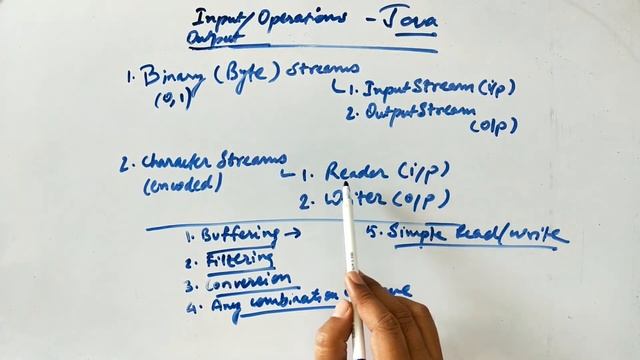 Input/Operations - Java
Output
1. Binary (Byte) Streams
(0,1)
1. InputStream (i/p)
2. OutputStream
(o/p)
2. Character Streams
(encoded)
1. Reader (i/p)
2. Writer (o/p)
1. Buffering →
2. Filtering
3. Conversion
4. Any combination
5. Simple Read/write